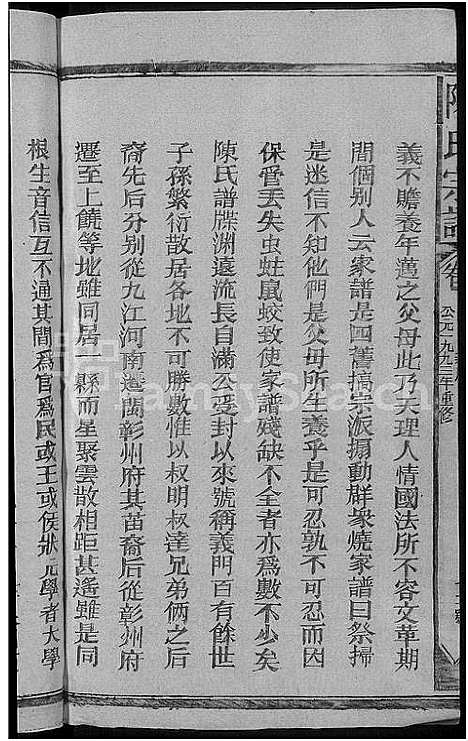 陳氏宗譜
公元一九九三年重修
義不贍養年邁之父母此乃天理人情國法所不容文革期
間個別人云家譜是四舊搞宗派搧動群衆燒家譜曰祭掃
是迷信不知他們是父母所生養乎是可忍孰不可忍而因
保管丟失虫蛀鼠蛟致使家譜殘缺不全者亦爲數不少矣
陳氏譜牒淵遠流長自滿公受封以來號稱義門百有餘世
子孫繁衍散居各地不可勝數惟以叔明叔達兄弟俩之后
裔先后分别從九江河南遷閩彰州府其苗裔后從彰州府
遷至上饒等地雖同居一縣而星聚雲散相距甚遙雖是同
根生音信互不通其間爲官爲民或王或侯狀元學者大學
FamilySearch